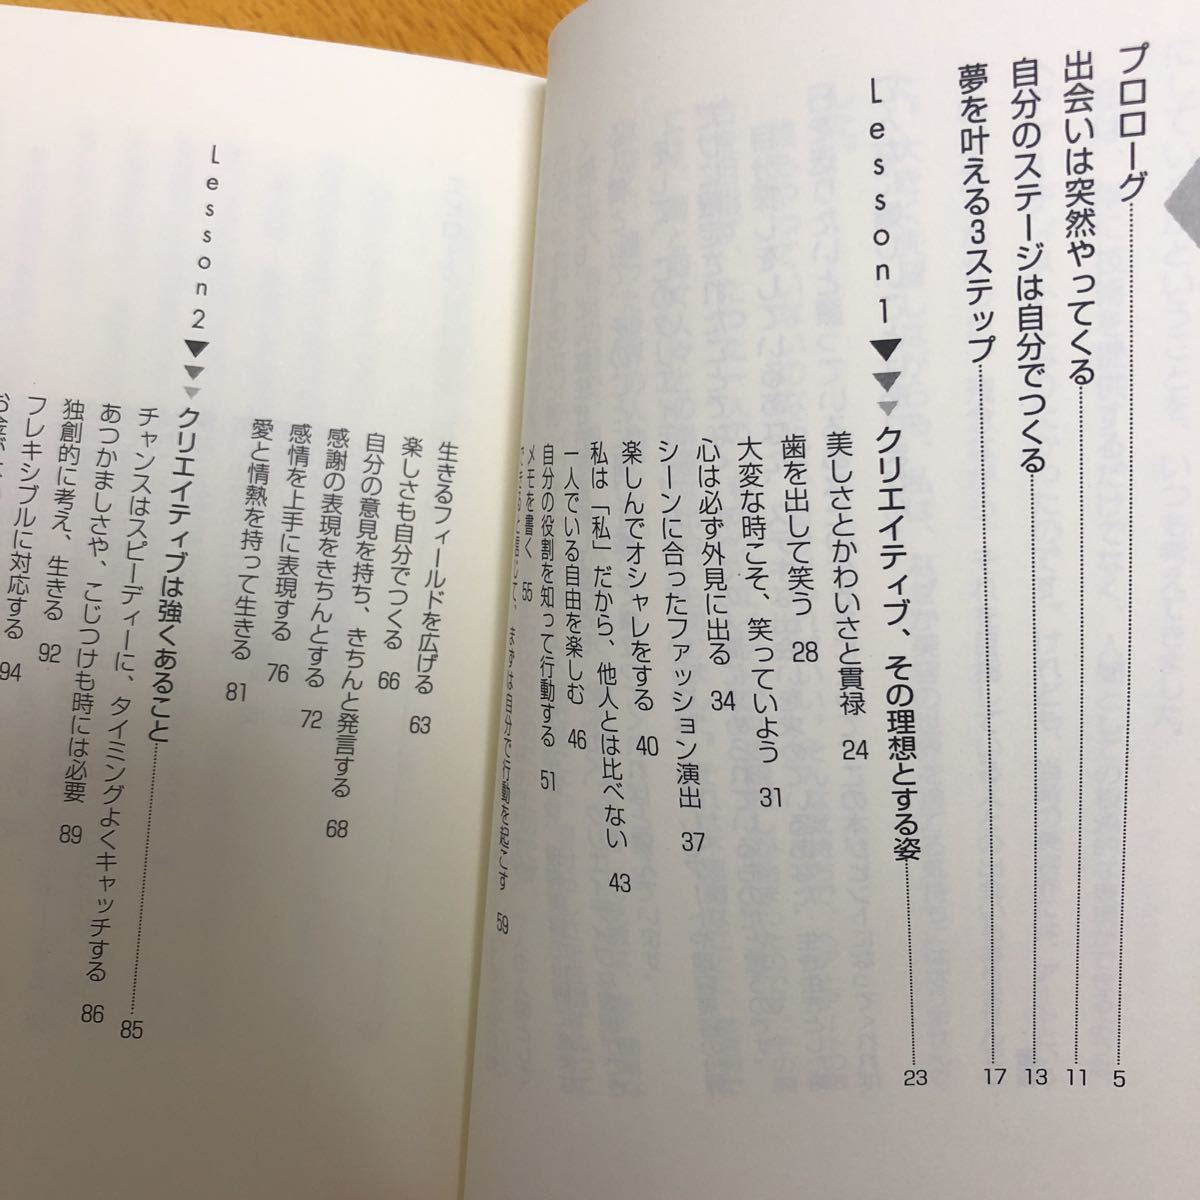 プロローグ 5
出会いは突然やってくる 11
自分のステージは自分でつくる 13
夢を叶える3ステップ 17
Lesson1 クリエイティブ、その理想とする姿 23
美しさとかわいさと貫禄 24
歯を出して笑う 28
大変な時こそ、笑っていよう 31
心は必ず外見に出る 34
シーンに合ったファッション演出 37
楽しんでオシャレをする 40
私は「私」だから、他人とは比べない 43
一人でいる自由を楽しむ 46
自分の役割を知って行動する 51
メモを書く 55
できると信じて、まずは自分で行動を起こす 59
生きるフィールドを広げる 63
楽しさも自分でつくる 66
自分の意見を持ち、きちんと発言する 68
感謝の表現をきちんとする 72
感情を上手に表現する 76
愛と情熱を持って生きる 81
Lesson2 クリエイティブは強くあること 85
チャンスはスピーディーに、タイミングよくキャッチする 86
あつかましさや、こじつけも時には必要 89
独創的に考え、生きる 92
フレキシブルに対応する 94
お金が